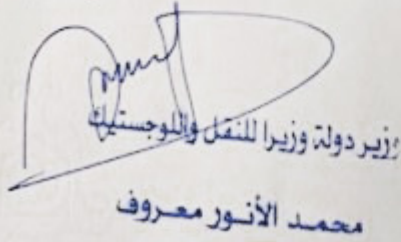 وزير دولة وزيرا للنقل واللوجستيك
محمد الأنور معروف